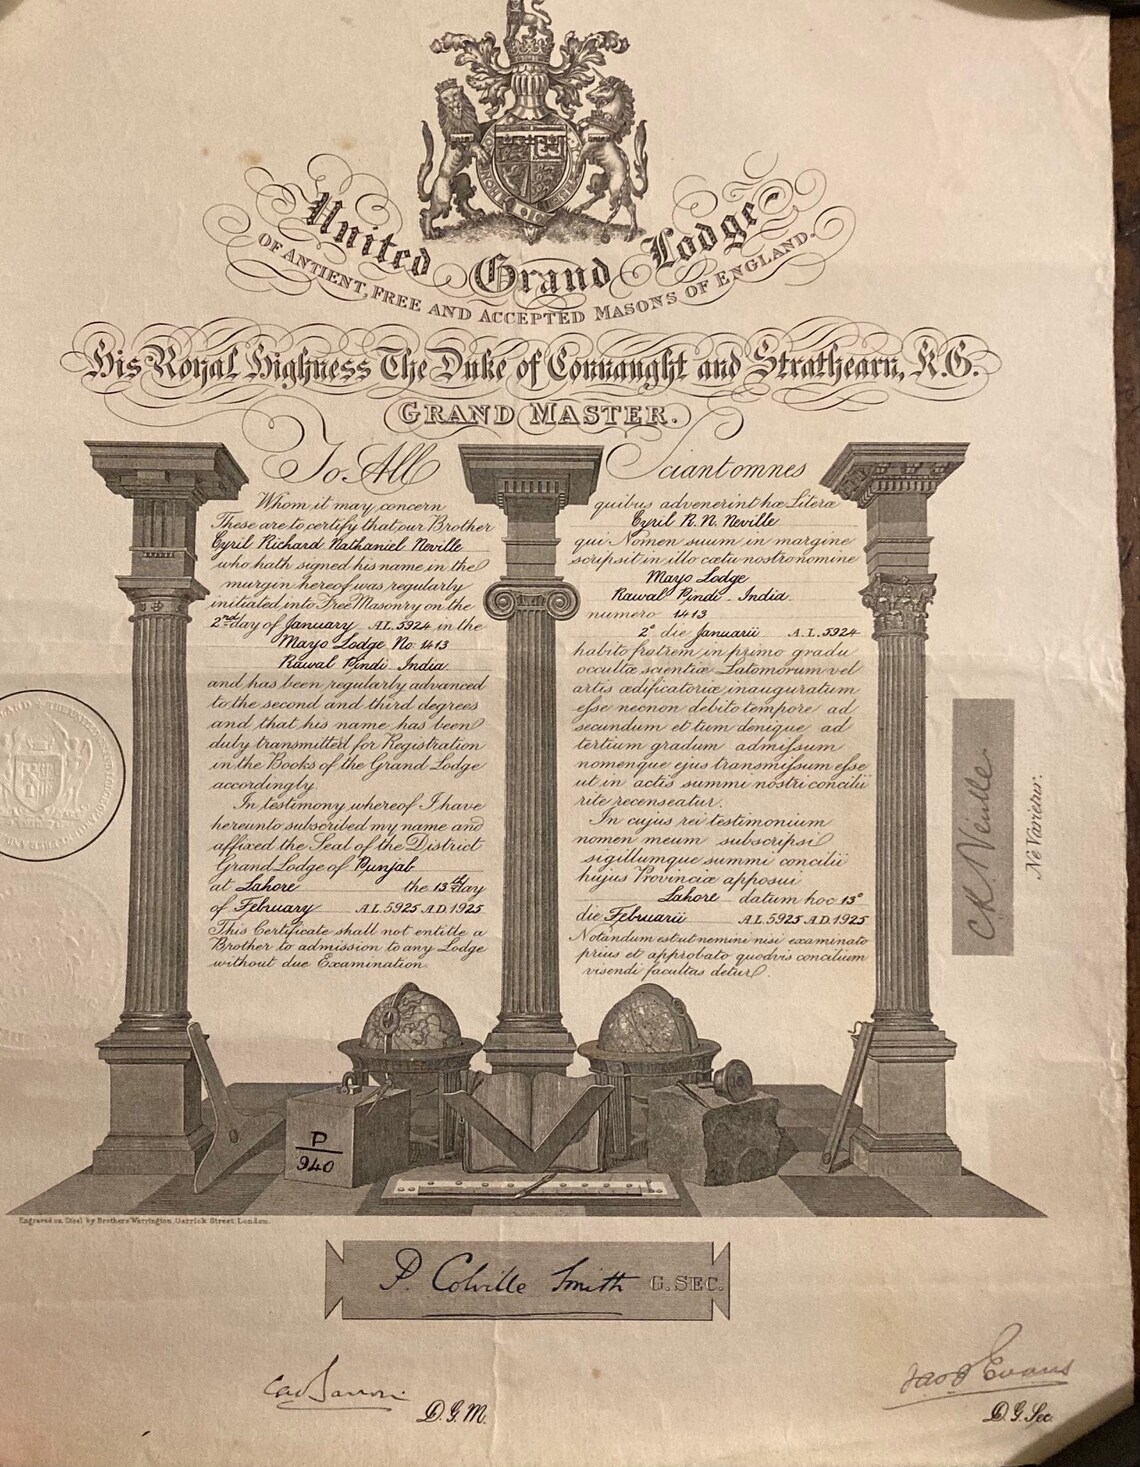 United Grand Lodge
OF ANTIENT, FREE AND ACCEPTED MASONS OF ENGLAND.
His Royal Highness The Duke of Connaught and Strathearn, K.G.
GRAND MASTER.
To All
Whom it may concern
These are to certify that our Brother
Cyril Richard Nathaniel Neville
who hath signed his name in the
margin hereof was regularly
initiated into Free Masonry on the
2nd day of January A.L. 5924 in the
Mayo Lodge No. 1413
Rawal Pindi India
and has been regularly advanced
to the second and third degrees
and that his name has been
duly transmitted for Registration
in the Books of the Grand Lodge
accordingly.
In testimony whereof I have
hereunto subscribed my name and
affixed the Seal of the District
Grand Lodge of Punjab
at Lahore the 13th day
of February A.L. 5925 A.D. 1925
This Certificate shall not entitle a
Brother to admission to any Lodge
without due Examination.
Sciant omnes
quibus advenerint hæ Literæ
Cyril R. N. Neville
qui Nomen suum in margine
scripsit in illo cœtu nostro nomine
Mayo Lodge
Rawal Pindi - India.
numero 1413
2º die Januarii A.L. 5924
habito fratrem in primo gradu
occultæ scientiæ Latomorum vel
artis ædificatoriæ inauguratum
esse necnon debito tempore ad
secundum et tum denique ad
tertium gradum admissum
nomenque ejus transmissum esse
ut in actis summi nostri concilii
rite recenseatur.
In cujus rei testimonium
nomen meum subscripsi
sigillumque summi concilii
hujus Provinciæ apposui
Lahore datum hoc 13º
die Februarii A.L. 5925 A.D. 1925
Notandum est ut nemini nisi examinato
prius et approbato quodvis concilium
visendi facultas detur.
C R N Neville
Ne Varietur.
P
940
Engraved on Steel by Brothers Warrington, Garrick Street, London.
P. Colville Smith G. SEC.
D.G.M.
Evans
D.G. Sec.